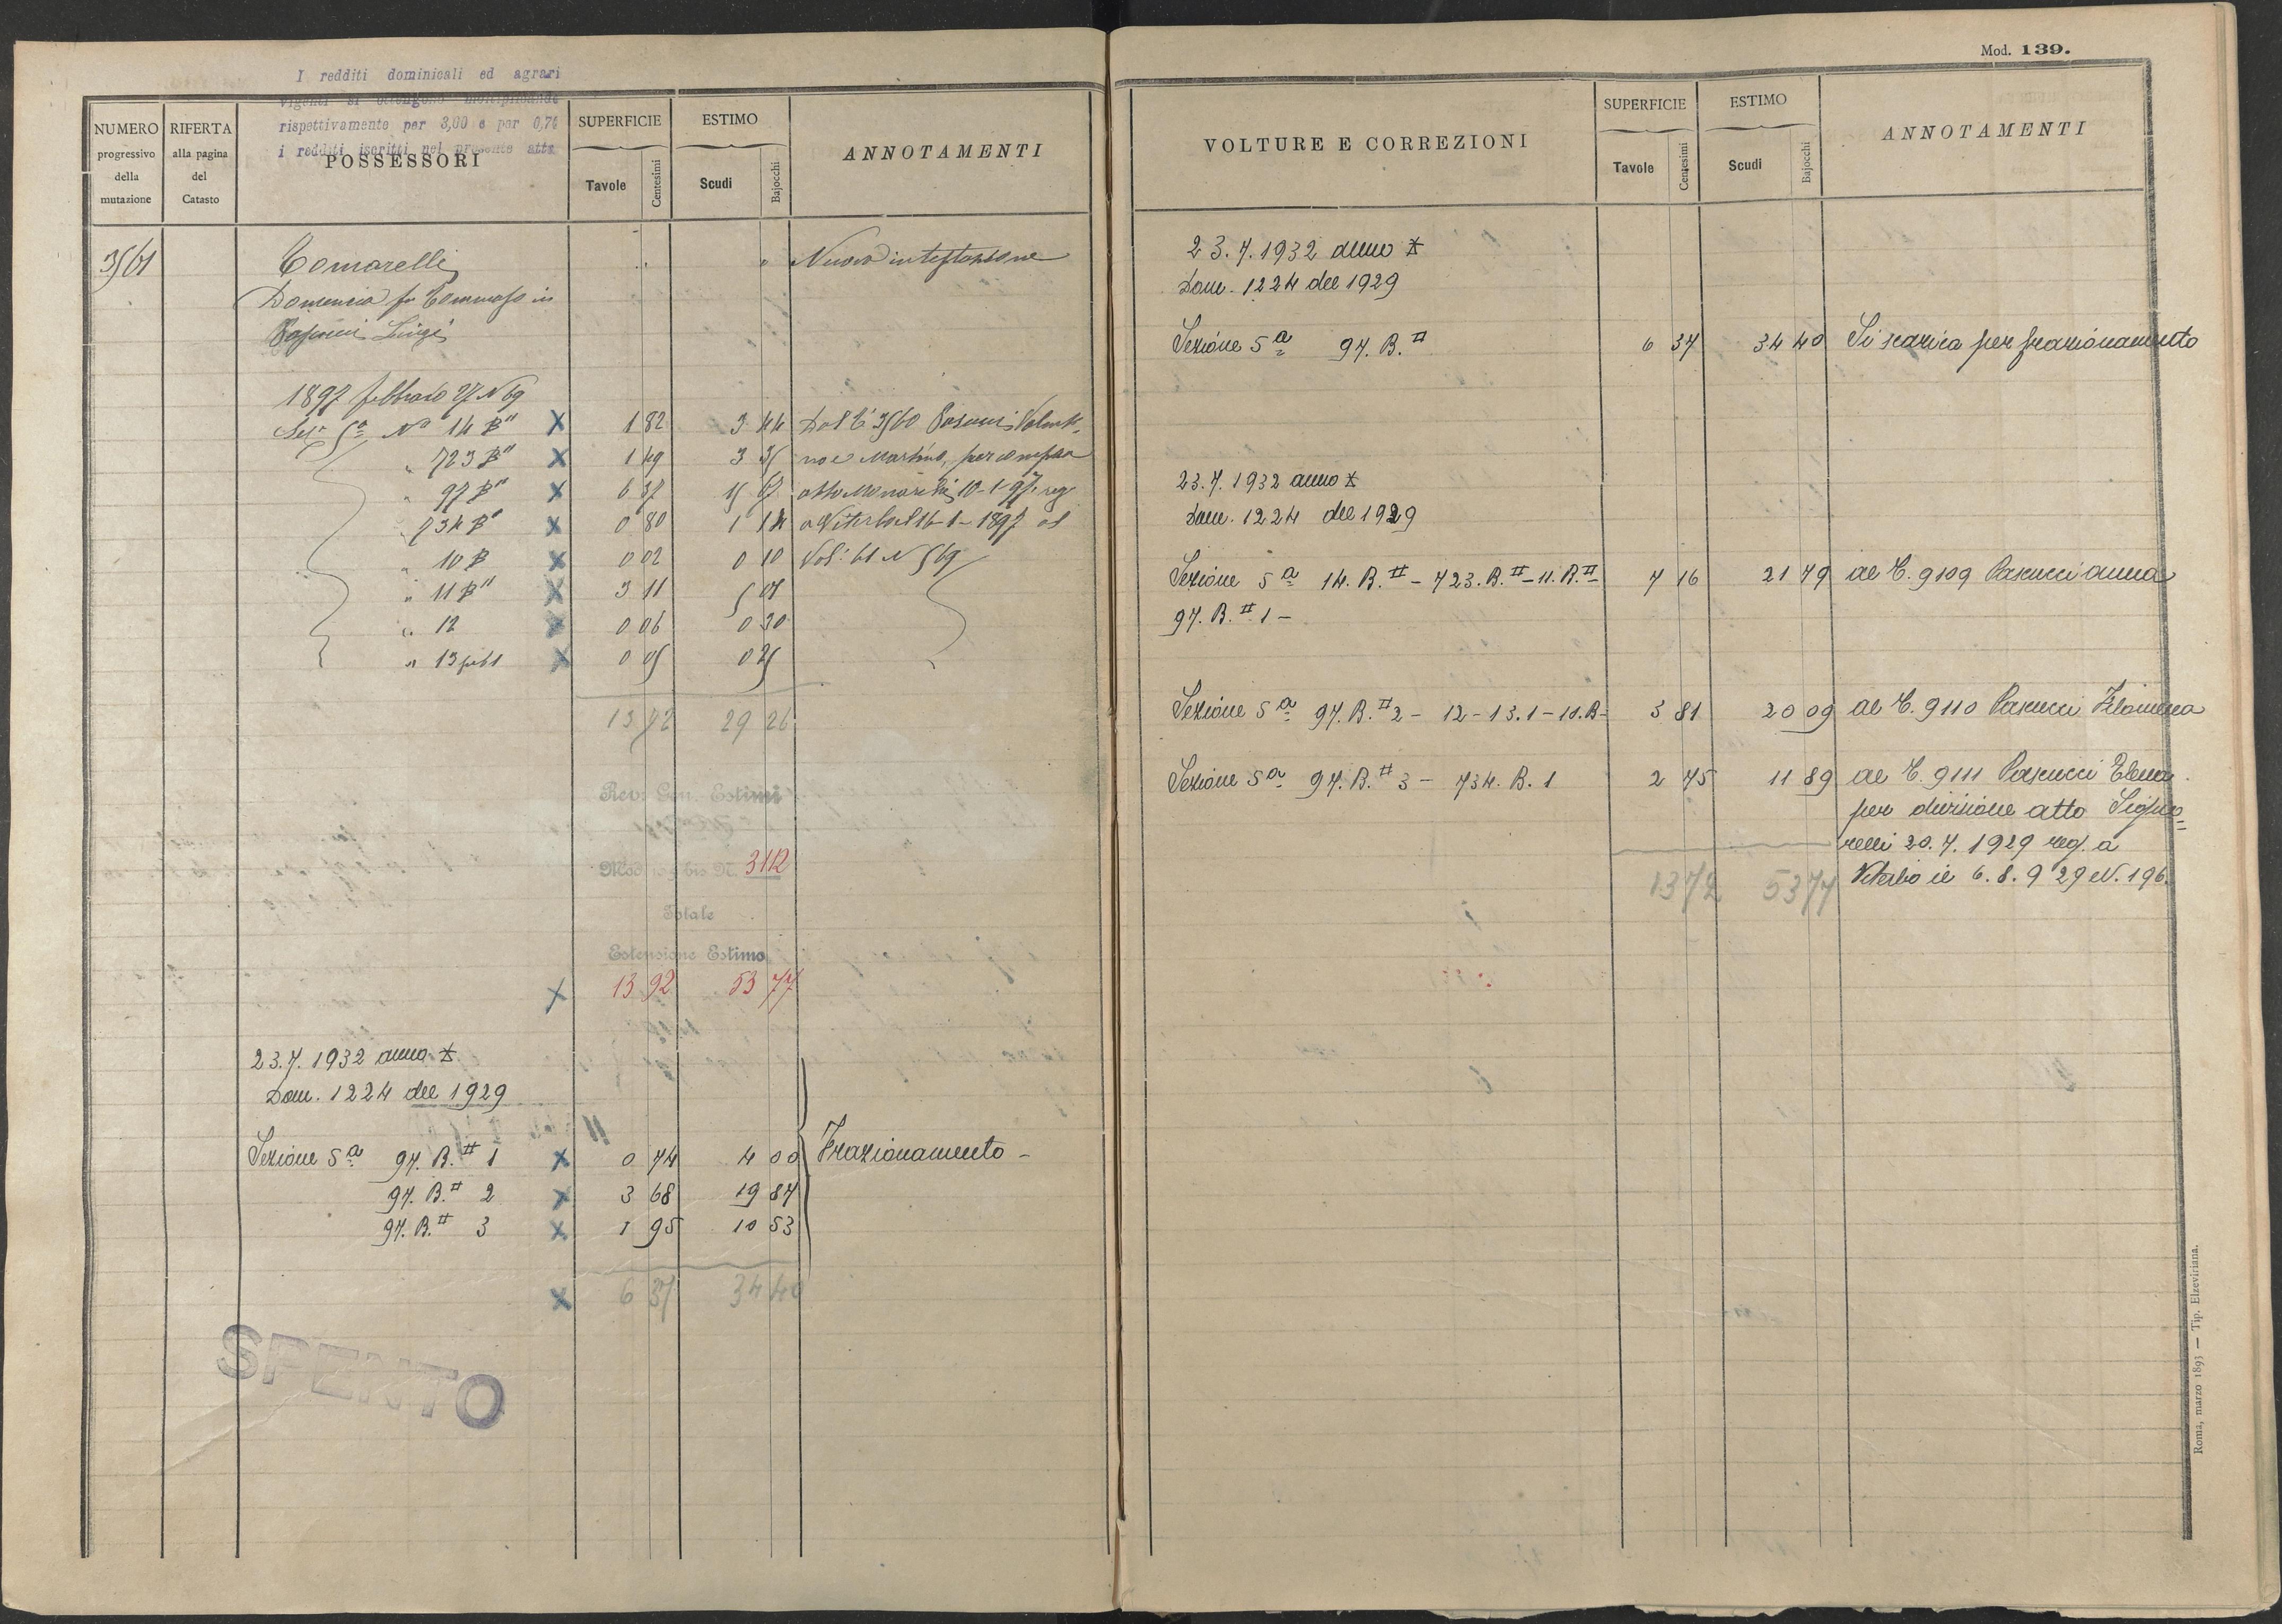 I redditi dominicali ed agrari
vigenti si ottengono moltiplicando
rispettivamente per 3,00 e per 0,74
i redditi iscritti nel presente atto
NUMERO progressivo della mutazione
RIFERTA alla pagina del Catasto
POSSESSORI
SUPERFICIE Tavole Centesimi
ESTIMO Scudi Bajocchi
ANNOTAMENTI
3561
Nuova intestazione
Domenica fu Tommaso in
Luigi
1897 febbraio 27 N 69
Sez. 5a No 14 B" X 1 82 3 44 Dal C 3560 Pascucci Valenti-
" 723 B" X 1 49 3 35 no e Martino, per compra
" 97 B" X 6 37 15 67 atto Monarchi 10-1-97 reg
" 734 B" X 0 80 1 14 a Viterbo il 16-1-1897 al
" 10 B X 0 02 0 10 Vol: 61 N 569
" 11 B" X 3 11 5 01
" 12 X 0 06 0 30
" 13 sub 1 X 0 05 0 25
13 72 29 26
Rev. Gen. Estimi
Mod. 109 bis N. 3112
Totale
Estensione Estimo
X 13 92 53 77
23.7.1932 anno X
Dom. 1224 del 1929
Sezione 5a 97. B.II 1 X 0 74 4 00 Frazionamento -
97. B.II 2 X 3 68 19 87
97. B.II 3 X 1 95 10 53
X 6 37 34 40
SPENTO
Mod. 139.
VOLTURE E CORREZIONI
SUPERFICIE Tavole Centesimi
ESTIMO Scudi Bajocchi
ANNOTAMENTI
23.7.1932 anno X
Dom. 1224 del 1929
Sezione 5a 97. B.II 6 37 34 40 Si scarica per frazionamento
23.7.1932 anno X
Dom. 1224 del 1929
Sezione 5a 14. B.II - 723. B.II - 11. B.II - 7 16 21 79 al C. 9109 Pascucci Anna
97. B.II 1 -
Sezione 5a 97. B.II 2 - 12 - 13.1 - 10. B - 3 81 20 09 al C. 9110 Pascucci Filomena
Sezione 5a 97. B.II 3 - 734. B. 1 2 75 11 89 al C. 9111 Pascucci Elena
per divisione atto Signo=
relli 20.7.1929 reg. a
13 72 53 77 Viterbo il 6.8.929 N. 196.
Roma, marzo 1893 — Tip. Elzeviriana.